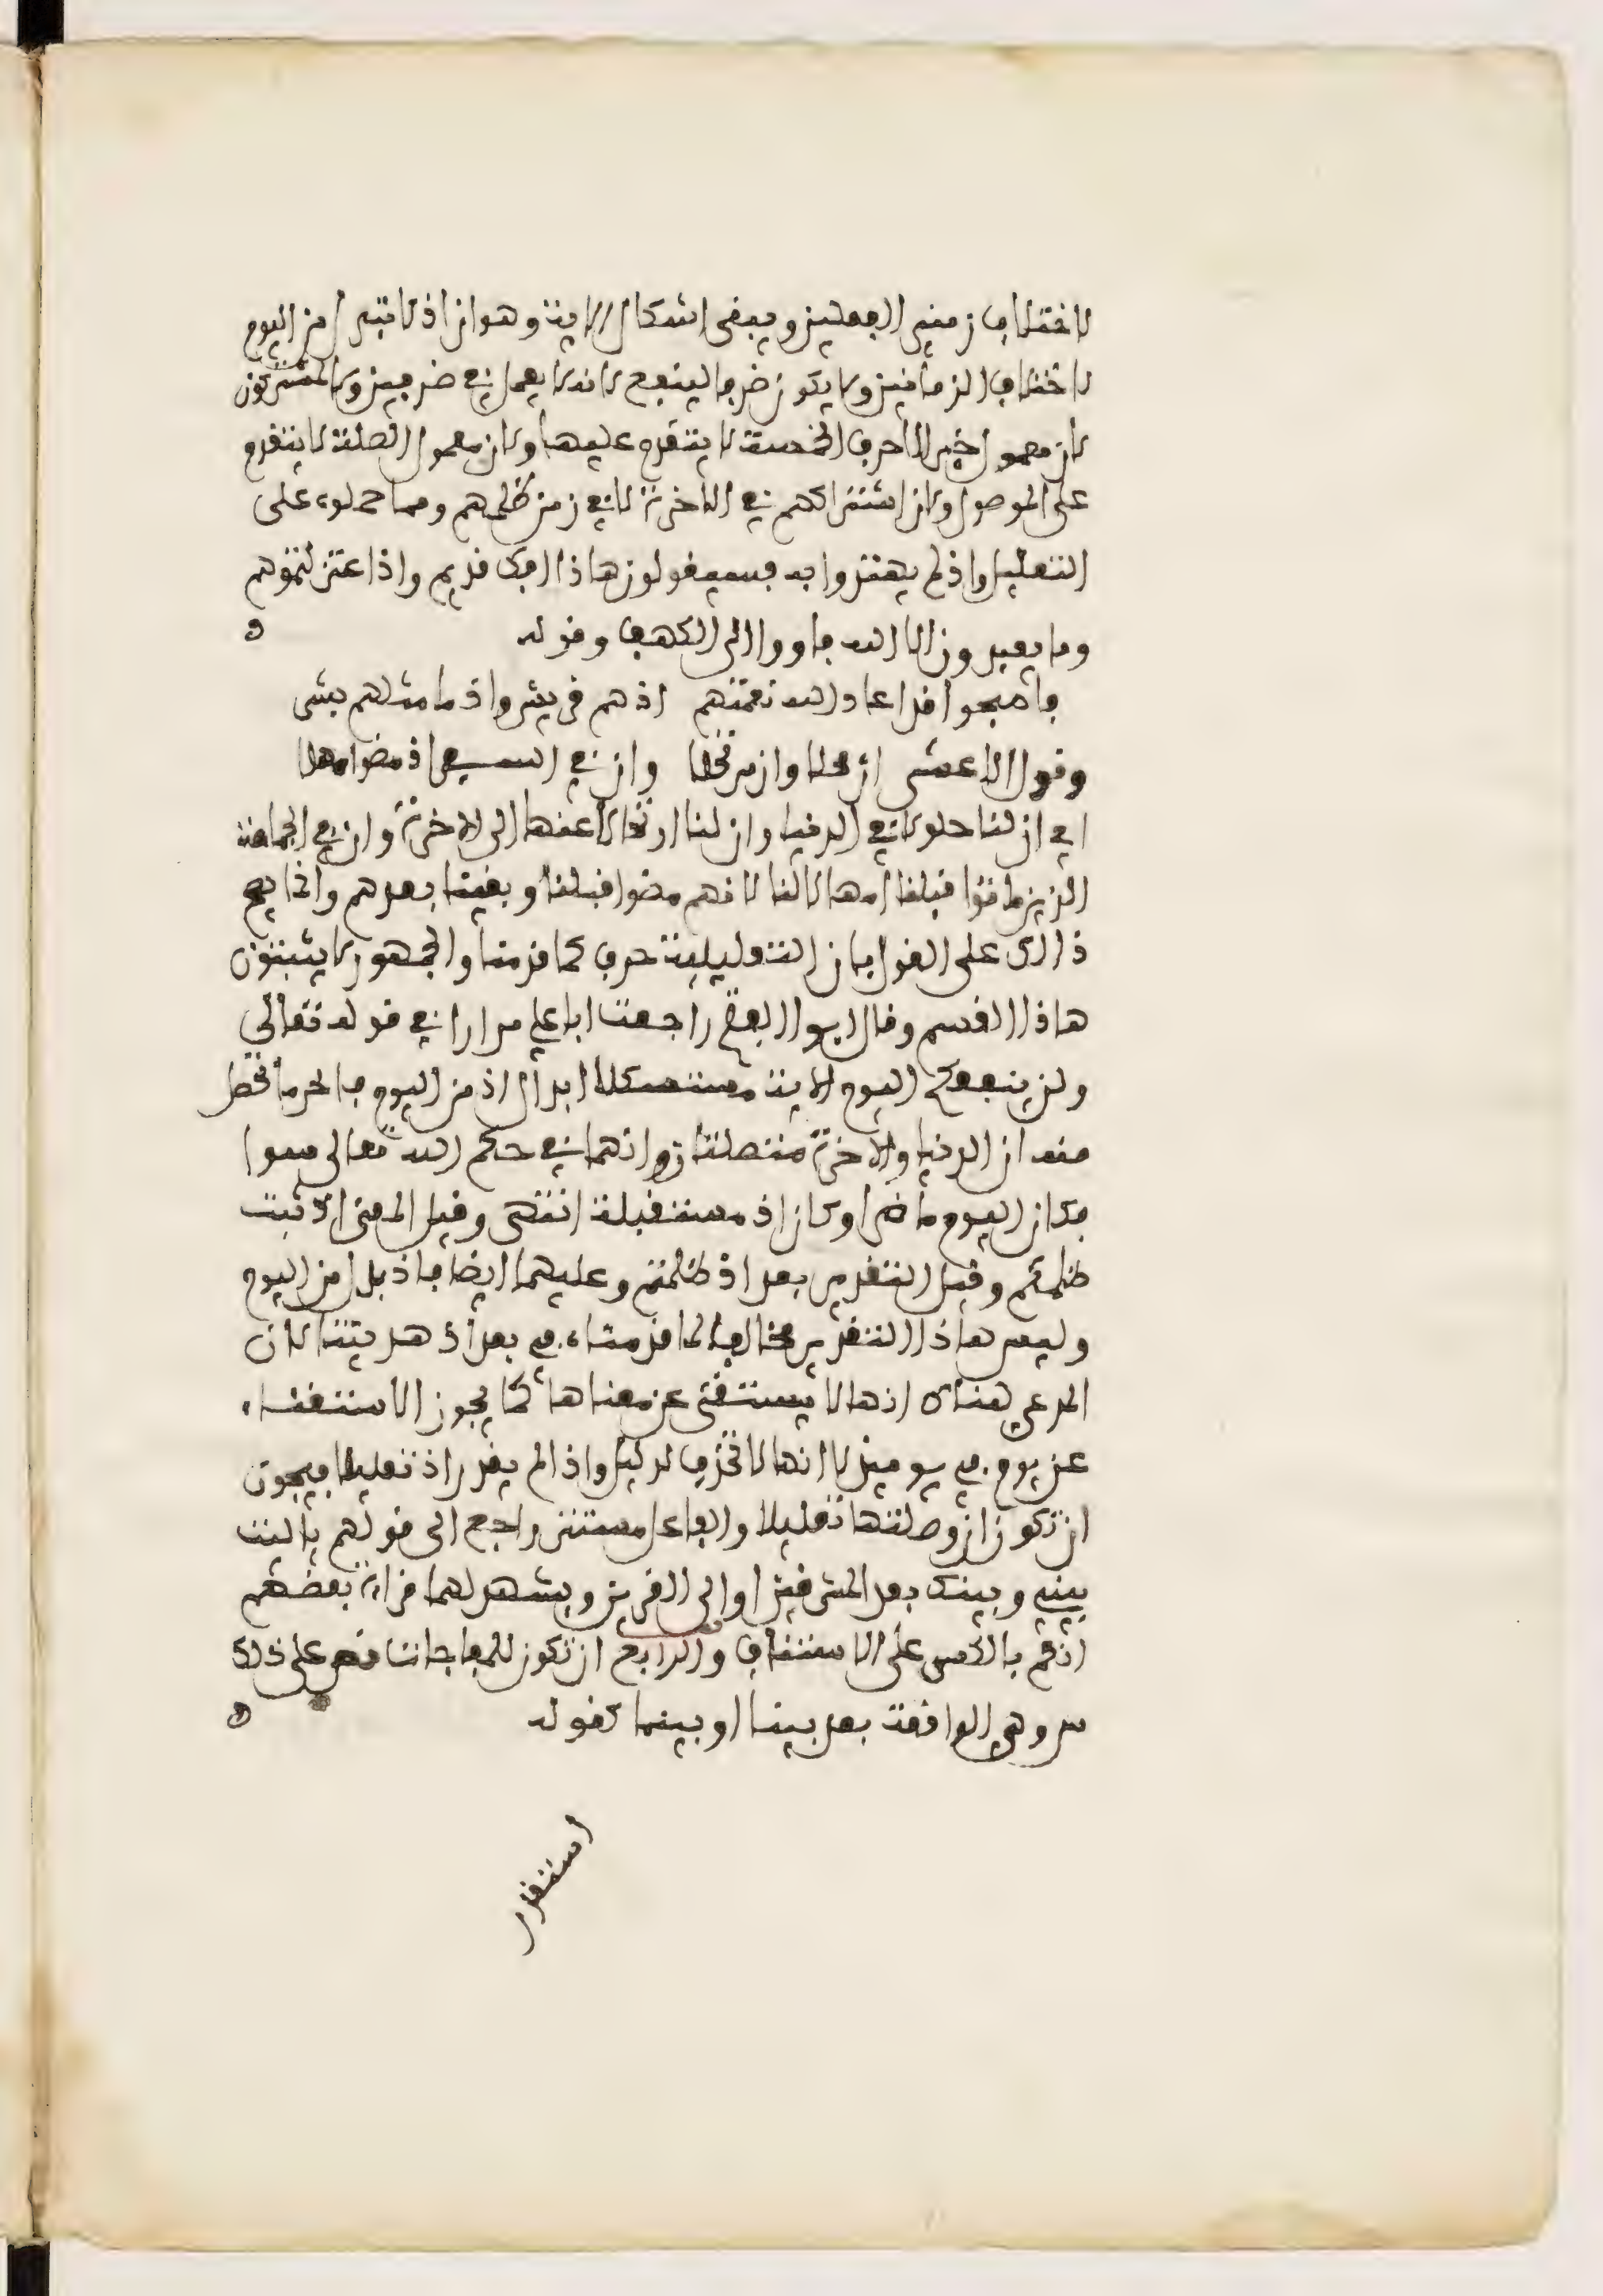 لاختلاف زمني الفعلين ويبقى اشكال الاية وهو ان اذ لا تبدل من اليوم
لاختلاف الزمانين ولا يكون ظرفا لينفع لانه لا يعمل في ظرفين ولا لمشتركون
لان معمول خبر الاحرف الخمسة لا يتقدم عليها ولان معمول الصلة لا يتقدم
على الموصول ولان اشتراكهم في الاخرة لا في زمن ظلمهم ومما حملوه على
التعليل واذ لم يهتدوا به فسيقولون هاذا افك قديم واذ اعتزلتموهم
وما يعبدون الا الله فاووا الى الكهف وقوله
فاصبحوا قد اعاد الله نعمتهم اذ هم قريش واذ ما مثلهم بشر
وقول الاعشى ان محلا وان مرتحلا وان في السفر اذ مضوا مهلا
اي ان لنا حلولا في الدنيا وان لنا ارتحالا عنها الى الاخرة وان في الجماعة
الذين ماتوا قبلنا امهالا لنا لانهم مضوا قبلنا وبقينا بعدهم وانما يصح
ذالك على القول بان التعليلية حرف كما قدمنا والجمهور لا يثبتون
هاذا القسم وقال ابو الفتح راجعت ابا علي مرارا في قوله تعالى
ولن ينفعكم اليوم الاية مستشكلا ابدال اذ من اليوم فاخر ما تحصل
منه ان الدنيا والاخرة متصلتان وانهما في حكم الله تعالى سوا
فكان اليوم ماض او كان اذ مستقبلة انتهى وقيل المعنى اذ ثبت
ظلمكم وقيل التقدير بعد اذ ظلمتم وعليهما ايضا فاذ بدل من اليوم
وليس هاذا التقدير مخالفا لما قدمناه في بعد اذ هديتنا لان
المدعي هناك انها لا يستغنى عن معناها كما يجوز الاستغناء
عن يوم في يومئذ لا انها لا تحذف لدليل واذا لم يقدر اذ تعليلا فيجوز
ان تكون ان وصلتها تعليلا والفاعل مستتر راجع الى قولهم يا ليت
بيني وبينك بعد المشرقين او الى القرين ويشهد لهما قراءة بعضهم
انكم بالكسر على الاستئناف والرابع ان تكون للمفاجات نص على ذلك
س وهي الواقعة بعد بينا او بينما كقوله
استقدر